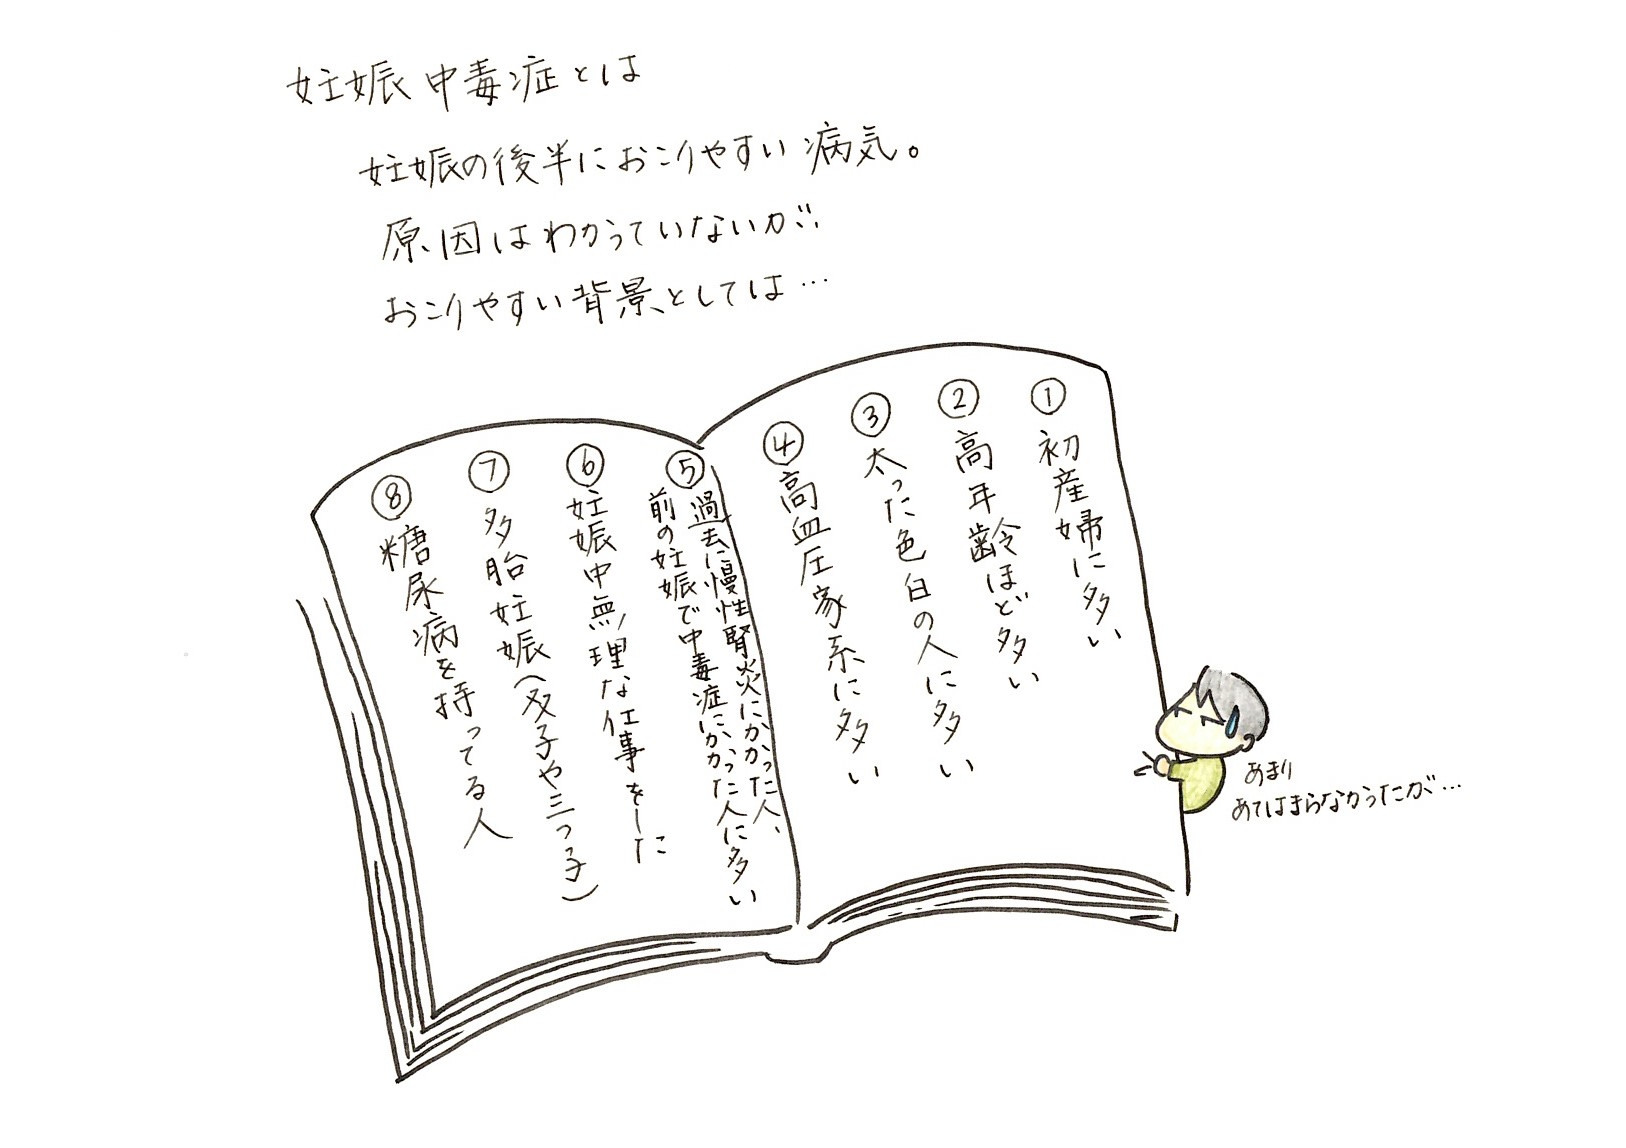 妊娠中毒症とは
妊娠の後半におこりやすい病気。
原因はわかっていないが、
おこりやすい背景としては…
① 初産婦に多い
② 高年齢ほど多い
③ 太った色白の人に多い
④ 高血圧家系に多い
⑤ 過去に慢性腎炎にかかった人、
前の妊娠で中毒症にかかった人に多い
⑥ 妊娠中無理な仕事をした
⑦ 多胎妊娠(双子や三つ子)
⑧ 糖尿病を持ってる人
あまり
あてはまらなかったが…